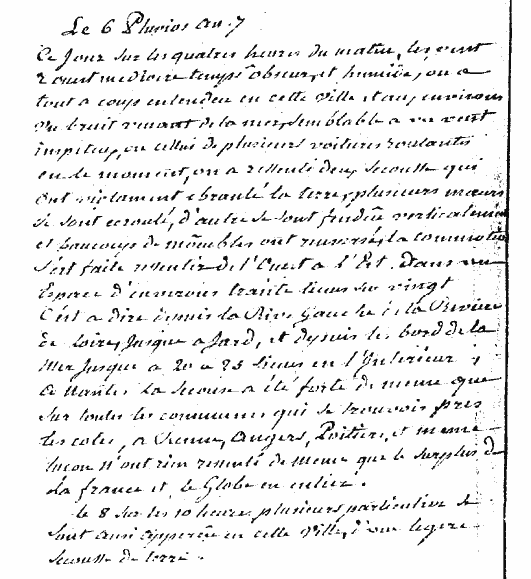 Le 6 Pluvios an. 7
Ce Jour sur les quatres heures du matin, les vent
l'ouest mediocre temps obscur, et humide, on a
tout a coup entendeu en cette ville et au, environs
un bruit venant de la mer, semblable a un vent
impetueu, ou cellui de plusieurs voitures roulants
en ce moment, on a ressenti deux secousse qui
ont violament ebranlé la terre, plusieurs meurs
se sont ecroulé, d'autre se sont fendue verticalement
et baucoup de meubles ont renversé, la commotion
s'est faite resentire de l'Ouest a l'Est. dans un
Espace d'environs trante lieus sur vingt
C'est a dire depuis la Rive Gauche de la Riviere
de Loire, Jusque a Jard, et depuis les bord de la
Mer Jusque a 20 a 25 lieues en l'Interieur ;
a Nantes la secouse a été forte de meme que
sur toutes les communes qui se trouvois pres
les cotes, a Vienne, Angers, Poitiers, et meme
n'ont rien resenti de meme que le surplus de
La france et le Globe en entier.
le 8 sur les 10 heure, plusieurs particulire se
sont aussi apperçue en cette ville, d'une legere
secousse de terre.